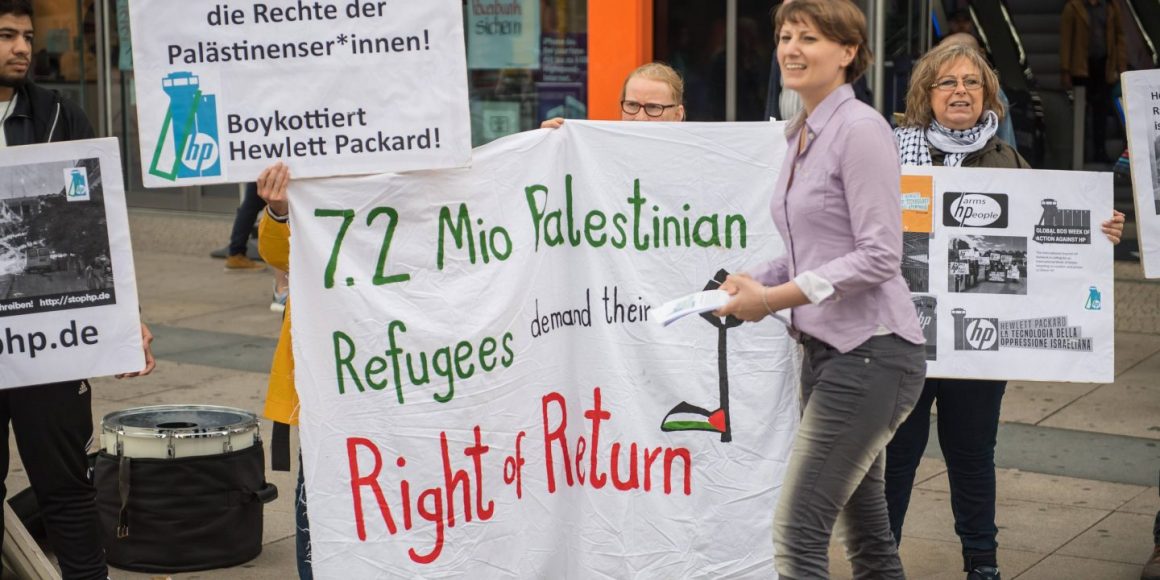 die Rechte der
Palästinenser*innen!
Boykottiert
Hewlett Packard!
hp
7.2 Mio Palestinian
Refugees demand their
Right of Return
schreiben! http://stophp.de
hp.de
sichern
arms
hp people
GLOBAL BDS WEEK OF
ACTION AGAINST
hp
HEWLETT PACKARD
LA TECNOLOGIA DELLA
OPPRESSIONE ISRAELIANA